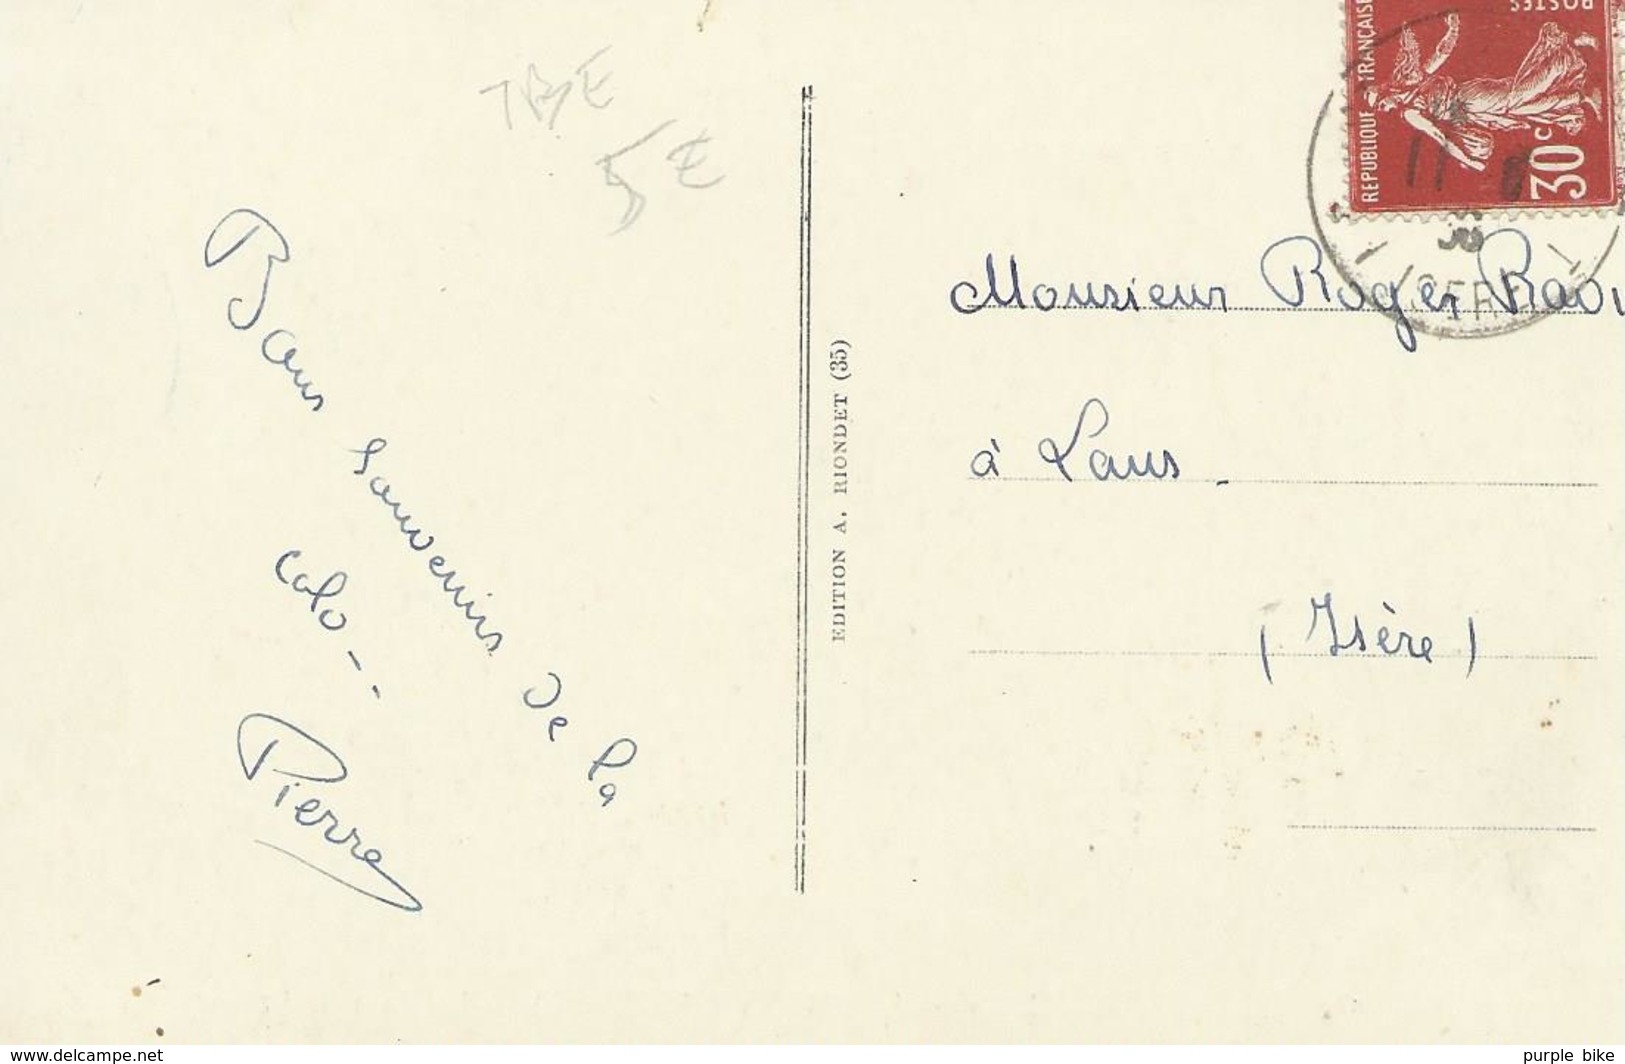 TBE
5 E
Bons souvenirs de la
colo --
Pierre
EDITION A. RIONDET (35)
REPUBLIQUE FRANÇAISE
POSTES
30c
11
38
ISERE
Monsieur Roger
à Lans.
(Isère)
www.delcampe.net
purple bike